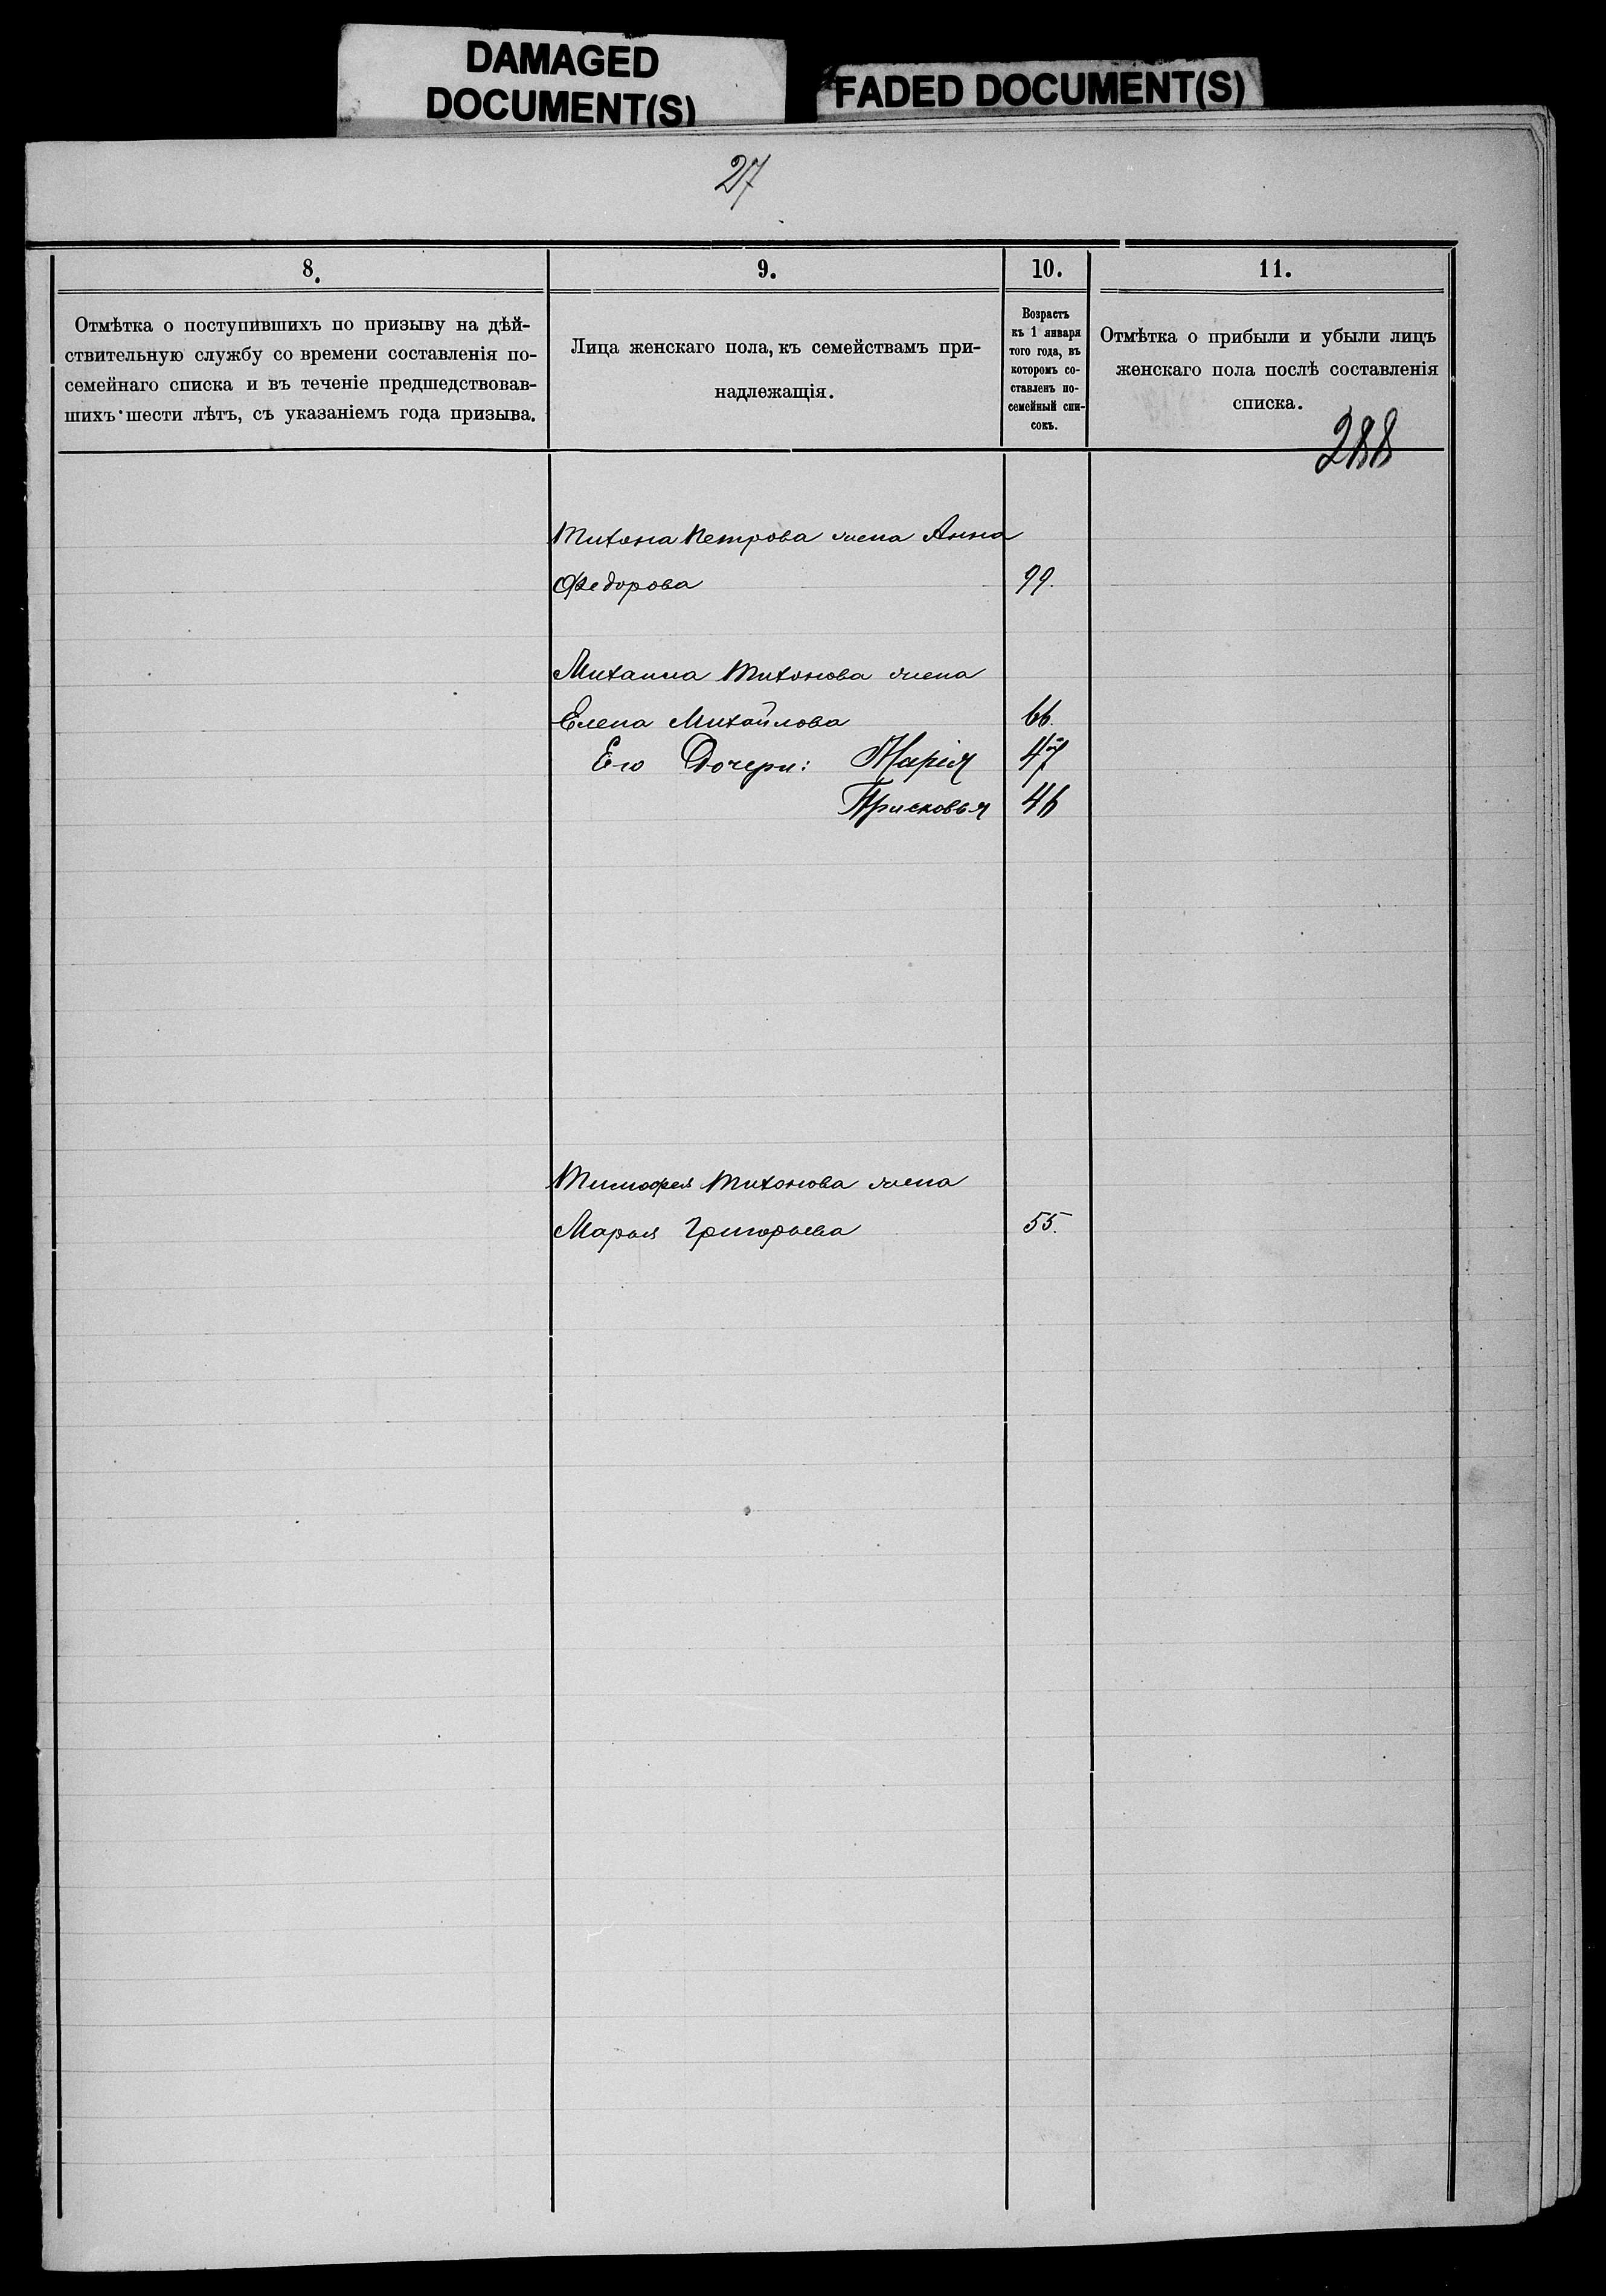 DAMAGED
DOCUMENT(S)
FADED DOCUMENT(S)
27
8.
9.
10.
11.
Отмѣтка о поступившихъ по призыву на дѣй-
ствительную службу со времени составленія по-
семейнаго списка и въ теченіе предшедствовав-
шихъ шести лѣтъ, съ указаніемъ года призыва.
Лица женскаго пола, къ семействамъ при-
надлежащія.
Возрастъ
къ 1 января
того года, въ
которомъ со-
ставленъ по-
семейный спи-
сокъ.
Отмѣтка о прибыли и убыли лицъ
женскаго пола послѣ составленія
списка.
288
Тихона Петрова жена Анна
Федорова 99.
Михаила Тихонова жена
Елена Михайлова 66.
Его Дочери: Марія 47
Присковья 46
Тимофея Тихонова жена
Марья Григорьева 55.